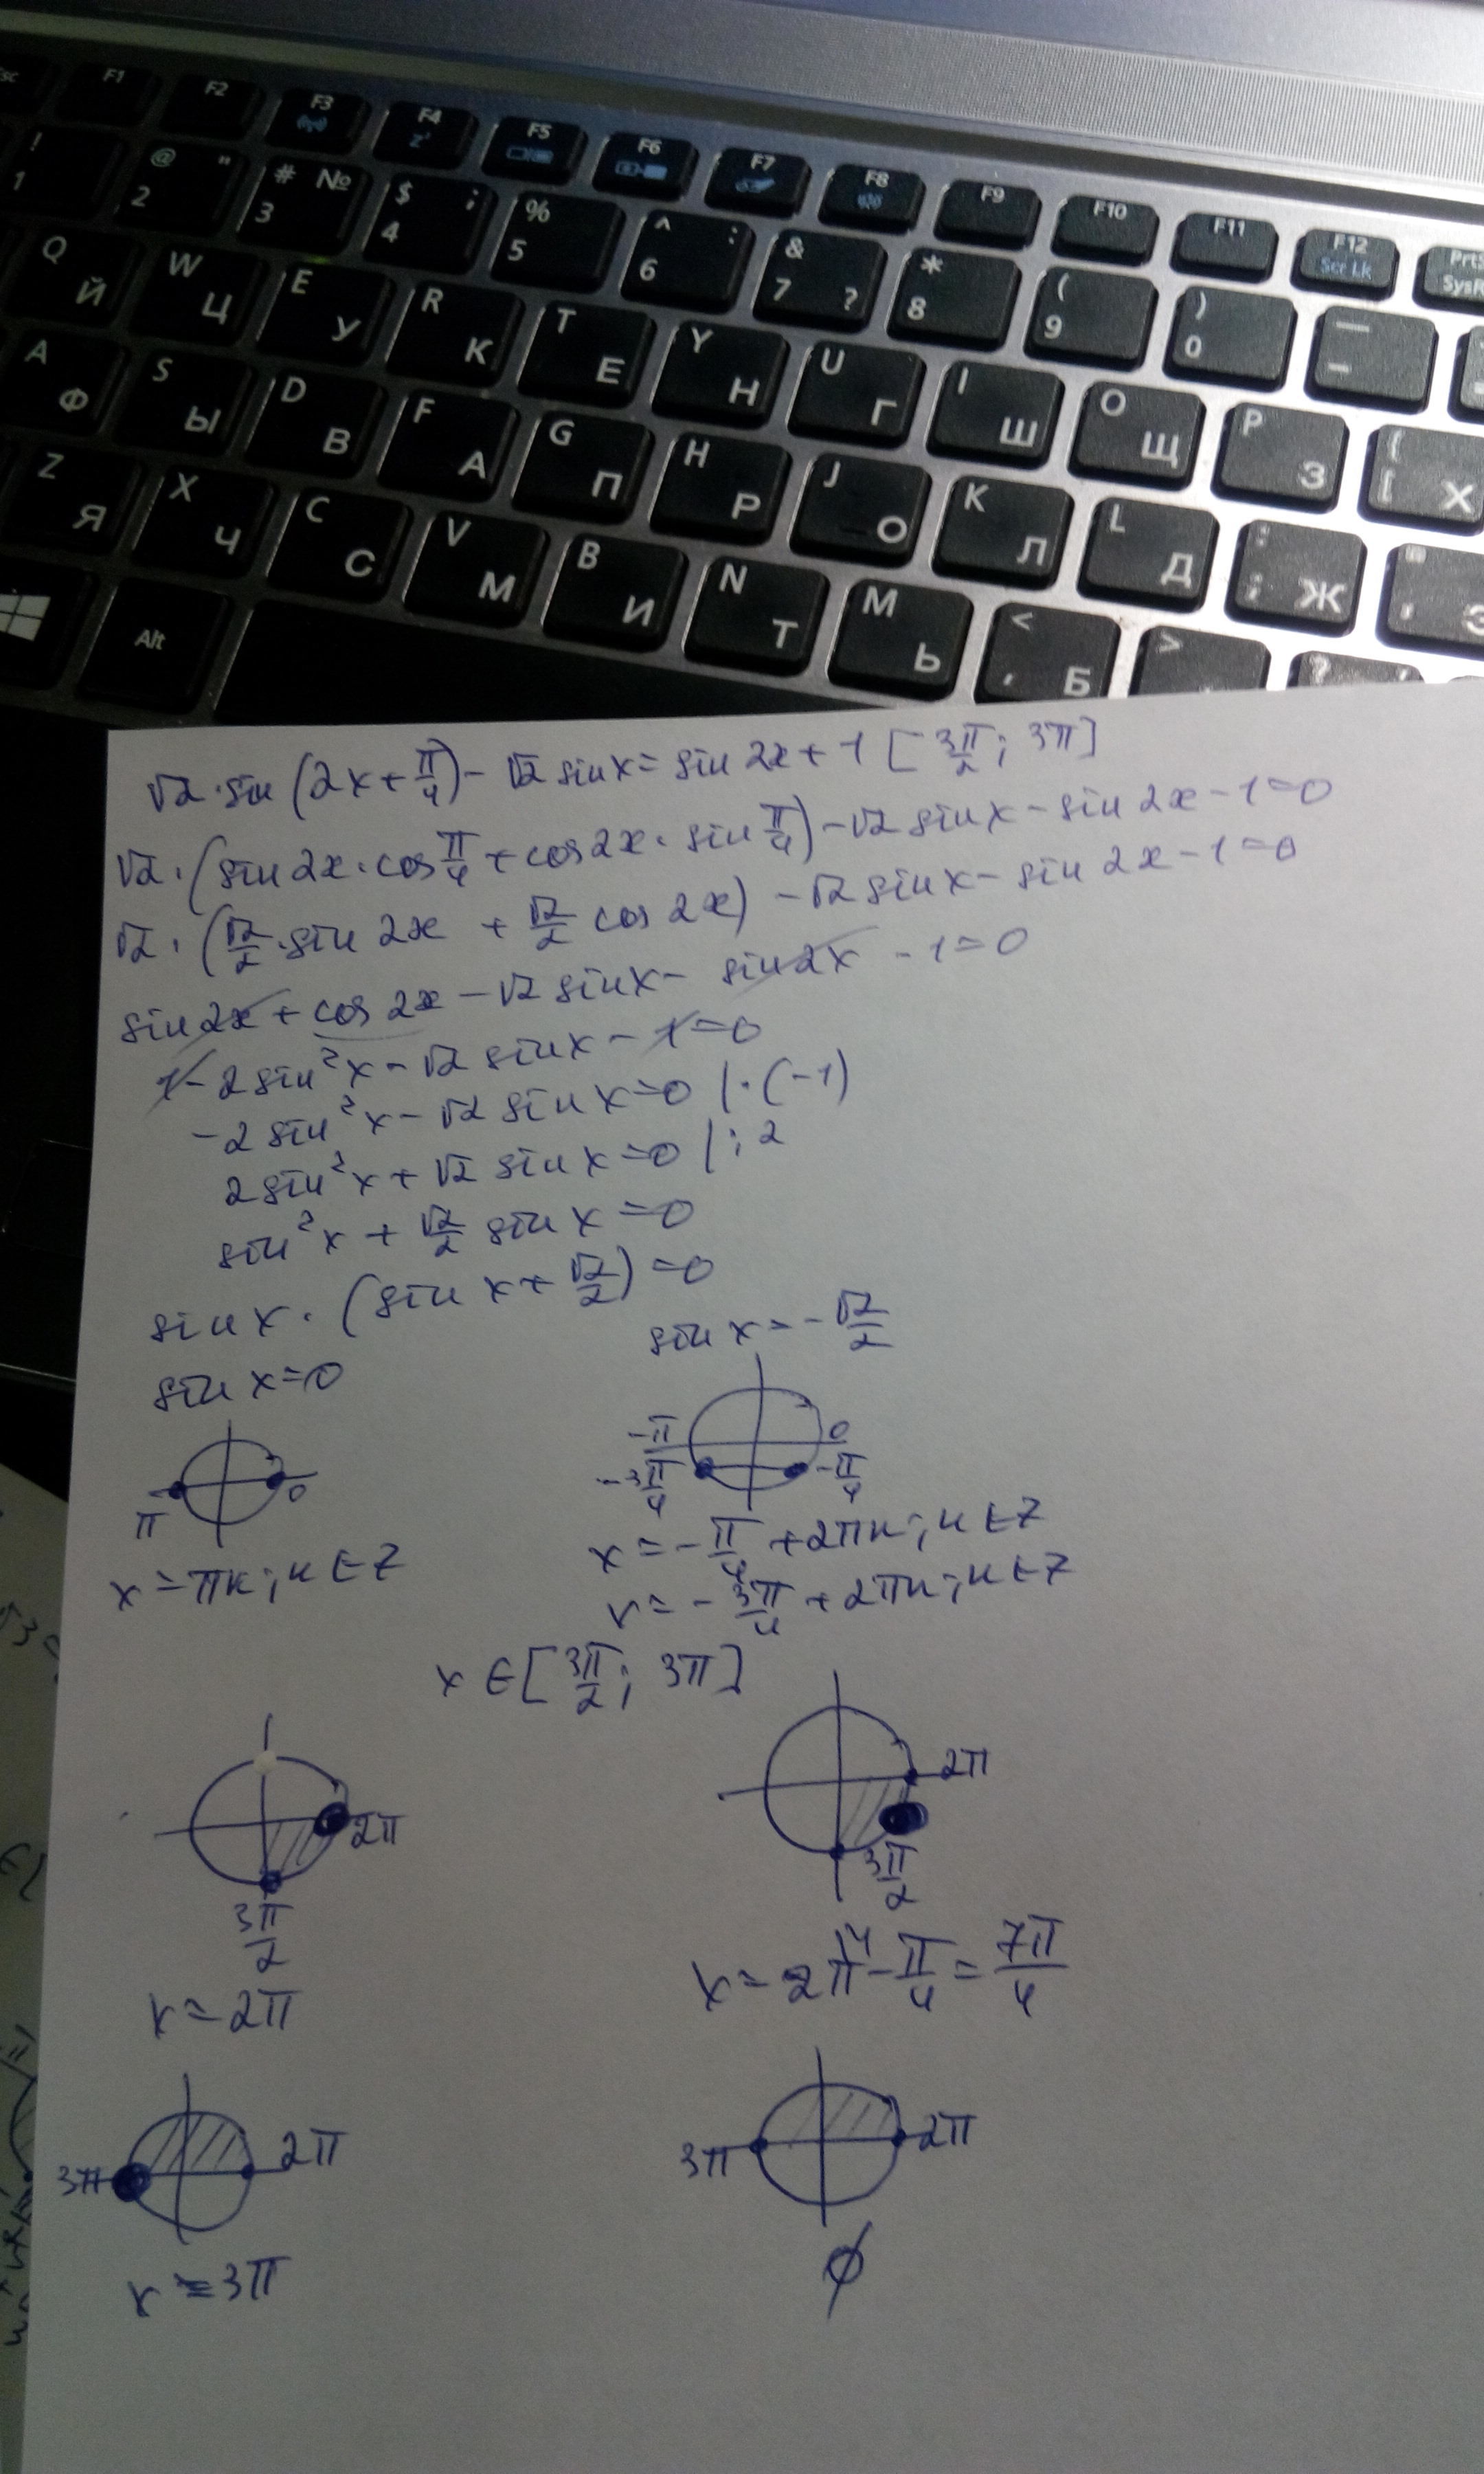 Esc F1 F2 F3 F4 F5 F6 F7 F8 F9 F10 F11 F12 PrtS
z² Scr Lk SysR
! 1 @ " 2 # № 3 $ ; 4 % 5 ^ : 6 & 7 ? * 8 ( 9 ) 0 _ -
Q Й W Ц E У R К T Е Y Н U Г I Ш O Щ P З { [ Х
A Ф S Ы D В F А G П H Р J О K Л L Д : ; Ж " ' Э
Z Я X Ч C С V М B И N Т M Ь < , Б > . ?
Alt
√2·sin(2x+π/4)-√2 sinx=sin2x+1 [3π/2; 3π]
√2·(sin2x·cosπ/4+cos2x·sinπ/4)-√2sinx-sin2x-1=0
√2·(√2/2·sin2x+√2/2 cos2x)-√2sinx-sin2x-1=0
sin2x+cos2x-√2sinx-sin2x-1=0
1-2sin²x-√2sinx-1=0
-2sin²x-√2sinx=0 |·(-1)
2sin²x+√2sinx=0 |:2
sin²x+√2/2 sinx=0
sinx·(sinx+√2/2)=0
sinx=0 sinx=-√2/2
π 0 -π 0 -3π/4 -π/4
x=πn; n∈Z x=-π/4+2πn; n∈Z
x=-3π/4+2πn; n∈Z
x∈[3π/2; 3π]
2π 2π
3π/2 3π/2
x=2π x=2π-π/4=7π/4
3π 2π 3π 2π
x=3π ∅